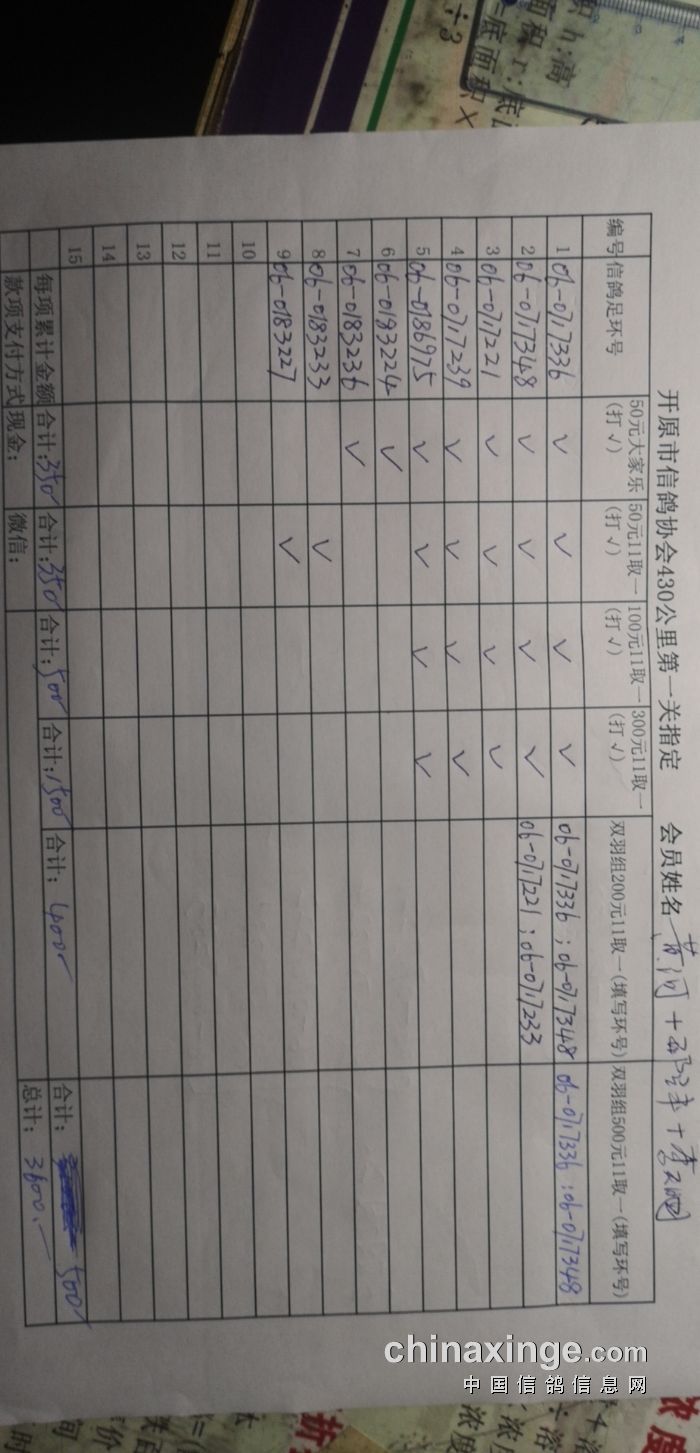 开原市信鸽协会430公里第一关指定 会员姓名 黄河+
编号 信鸽足环号 50元大家乐(打√) 50元11取一(打√) 100元11取一(打√) 300元11取一(打√) 双羽组200元11取一(填写环号) 双羽组500元11取一(填写环号)
1 06-0717336 √ √ √ √ 06-0717336;06-0717348 06-0717336;06-0717348
2 06-0717348 √ √ √ √ 06-0717221;06-0717233
3 06-0717221 √ √ √ √
4 06-0717239 √ √ √ √
5 06-0186975 √ √ √ √
6 06-0193224 √
7 06-0183236 √
8 06-0183233 √
9 06-0183227 √
10
11
12
13
14
15
每项累计金额 合计:350 合计:350 合计:500 合计:1500 合计:400 合计:500
款项支付方式 现金: 微信: 总计:3600.
chinaxinge.com
中国信鸽信息网
积 h:高
面积 r:底
=底面积×
÷3